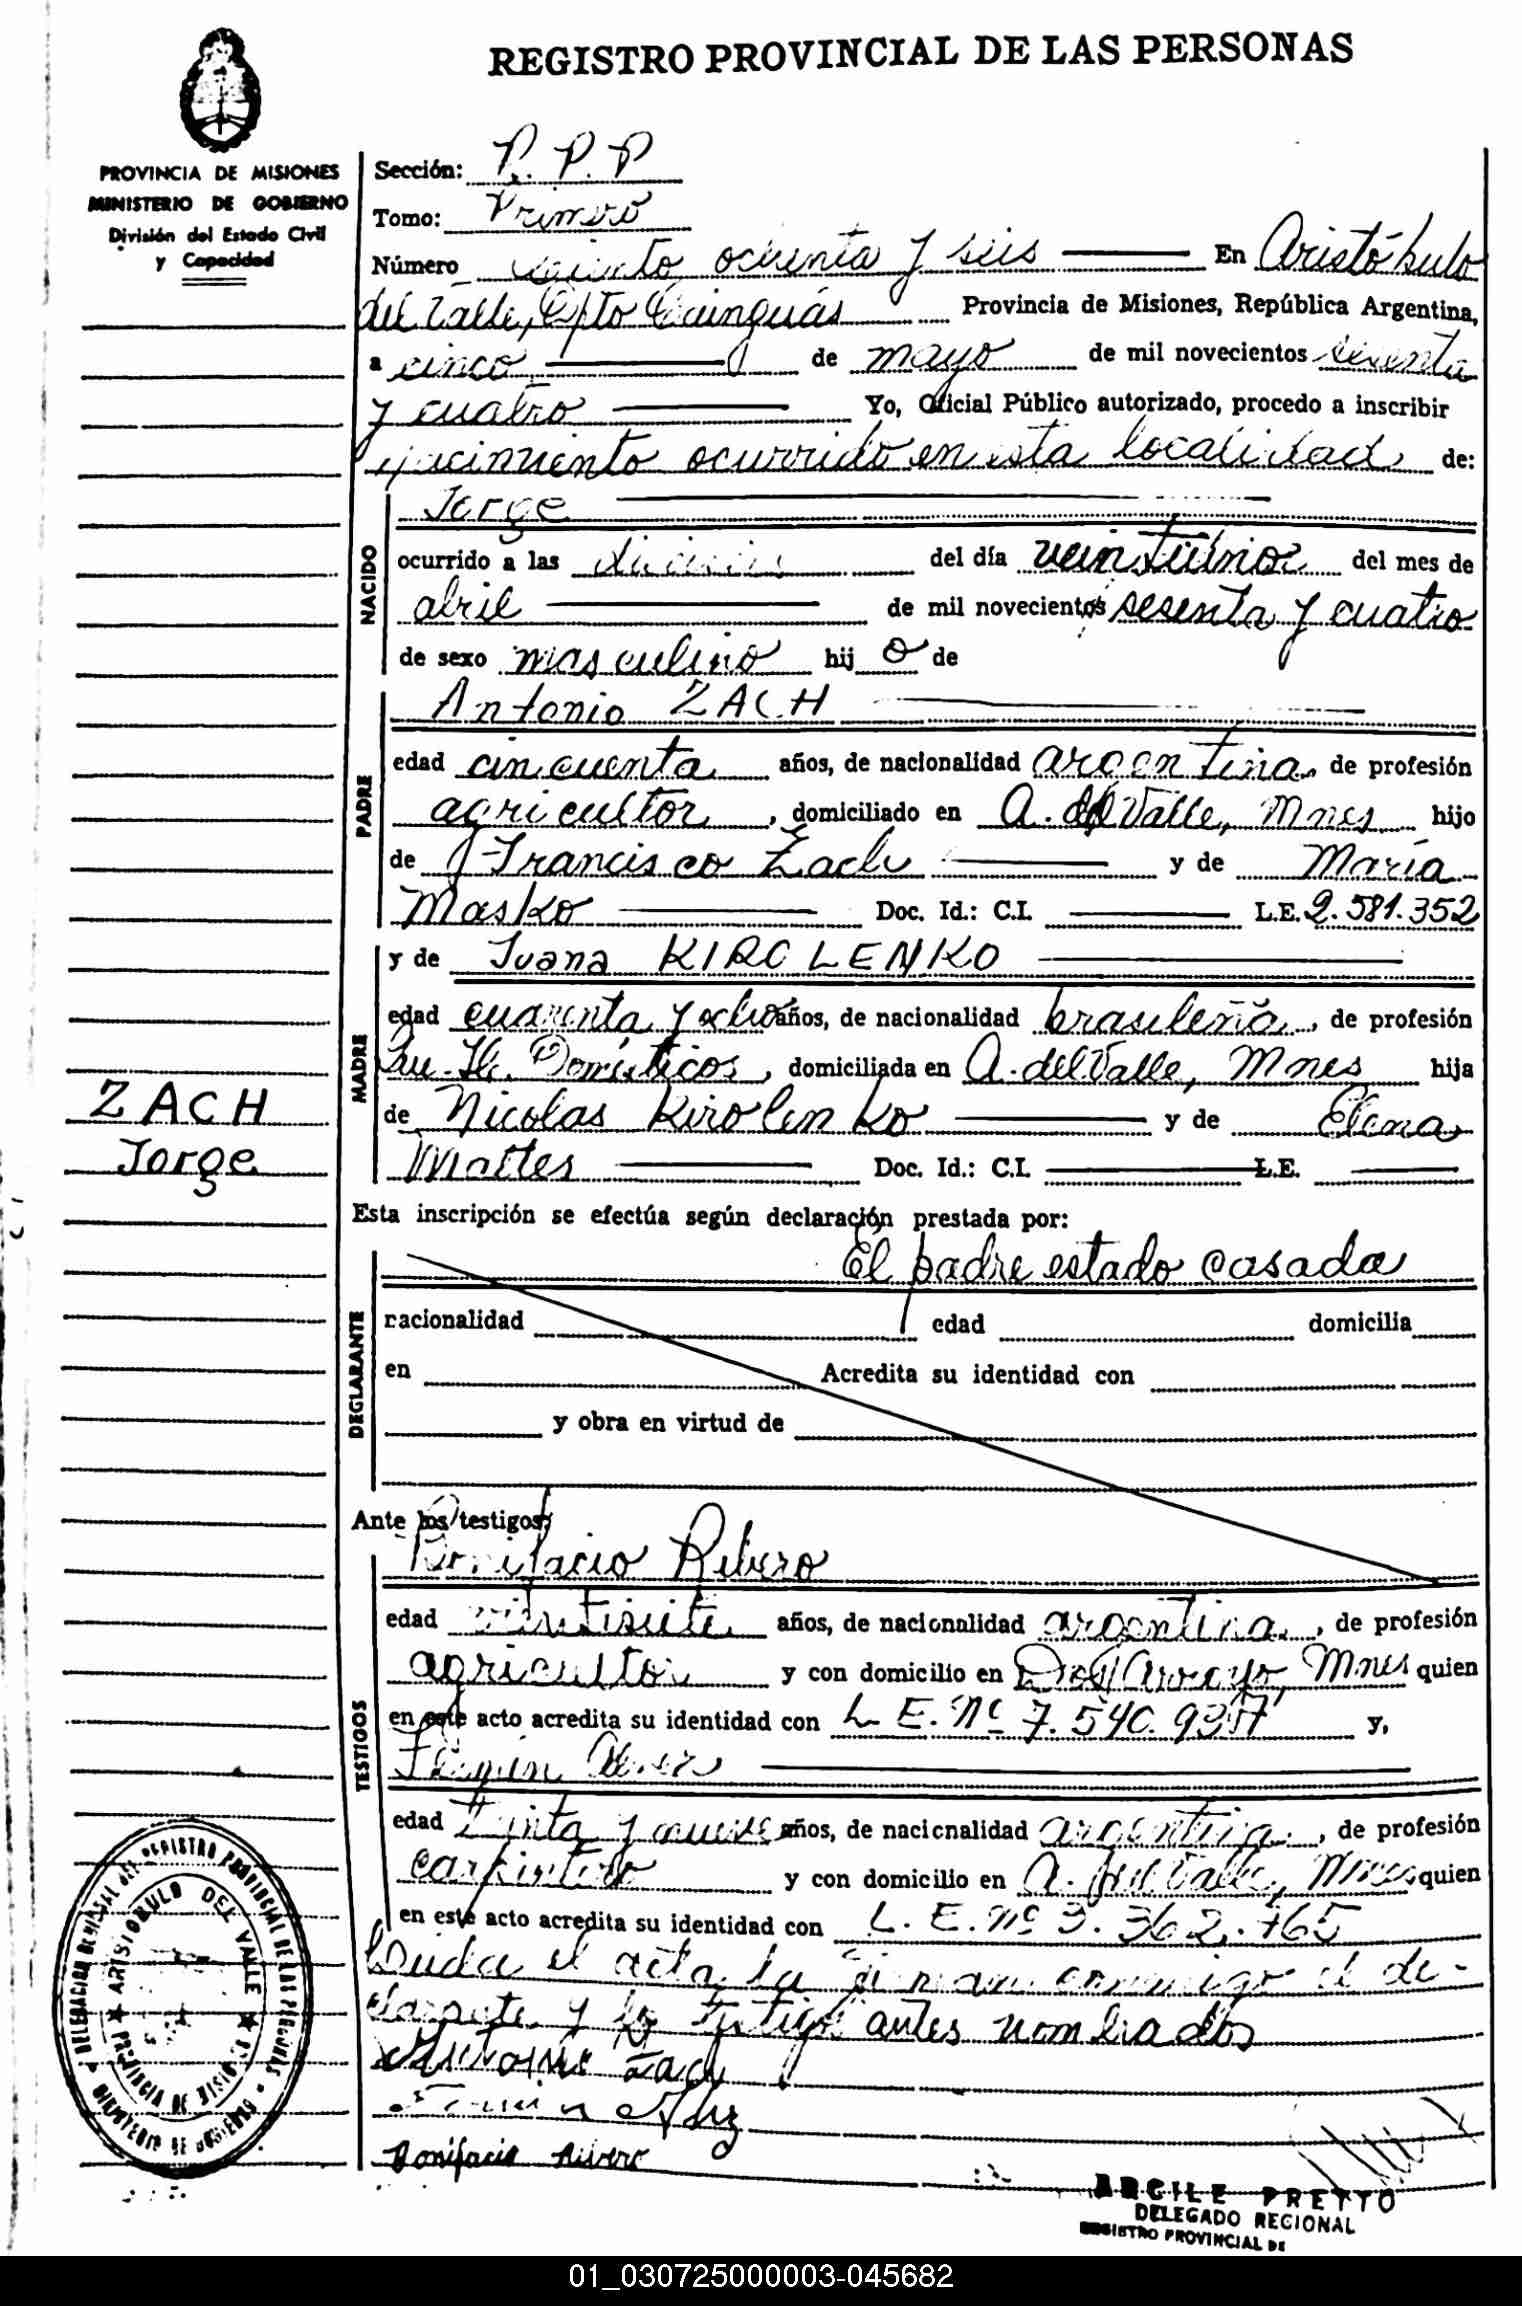 REGISTRO PROVINCIAL DE LAS PERSONAS
PROVINCIA DE MISIONES
MINISTERIO DE GOBIERNO
División del Estado Civil
y Capacidad
Sección: P.P.P
Tomo: Primero
Número ciento ochenta y seis En Aristóbulo
del Valle, Dpto Cainguás Provincia de Misiones, República Argentina,
a cinco de mayo de mil novecientos sesenta
y cuatro Yo, Oficial Público autorizado, procedo a inscribir
nacimiento ocurrido en esta localidad de:
NACIDO
Jorge
ocurrido a las del día veintiuno del mes de
abril de mil novecientos sesenta y cuatro
de sexo masculino hij o de
PADRE
Antonio ZACH
edad cincuenta años, de nacionalidad argentina, de profesión
agricultor, domiciliado en A. del Valle, Mnes hijo
de Francisco Zach y de María
Masko Doc. Id.: C.I. L.E. 2.581.352
MADRE
y de Juana KIROLENKO
edad cuarenta y ocho años, de nacionalidad brasileña, de profesión
Domésticos, domiciliada en A. del Valle, Mnes hija
de Nicolas Kirolenko y de Elena
Mattes Doc. Id.: C.I. L.E.
ZACH
Jorge
Esta inscripción se efectúa según declaración prestada por:
DECLARANTE
El padre estado casada
nacionalidad edad domicilia
en Acredita su identidad con
y obra en virtud de
Ante los testigos
TESTIGOS
Bonifacio Ribero
edad veintisiete años, de nacionalidad argentina, de profesión
agricultor y con domicilio en Dos Arroyo, Mnes quien
en este acto acredita su identidad con L.E. Nº 7.540.937 y,
Fermín
edad treinta y nueve años, de nacionalidad argentina, de profesión
carpintero y con domicilio en A. del Valle, Mnes quien
en este acto acredita su identidad con L.E. Nº 3.362.765
Leída el acta la firman conmigo el de-
clarante y los testigos antes nombrados
Antonio Zach
Bonifacio Ribero
DELEGACION REGIONAL DEL REGISTRO PROVINCIAL DE LAS PERSONAS
ARISTOBULO DEL VALLE
PROVINCIA DE MISIONES
MINISTERIO DE GOBIERNO
ARGILE PRETTO
DELEGADO REGIONAL
REGISTRO PROVINCIAL DE
01_030725000003-045682